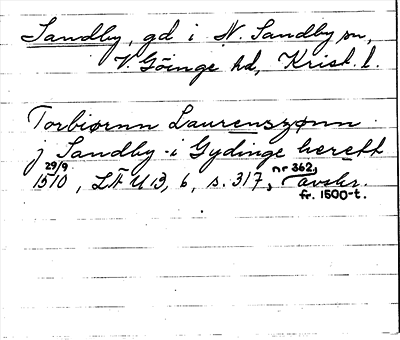 Sandby, gd i N. Sandby sn,
V. Göinge hd, Krist. l.
Torbiørnn Laurenszønn
j Sandby i Gydinge herett
29/9 1510, LFU 13, 6, s. 317, nr 362, avskr.
fr. 1500-t.